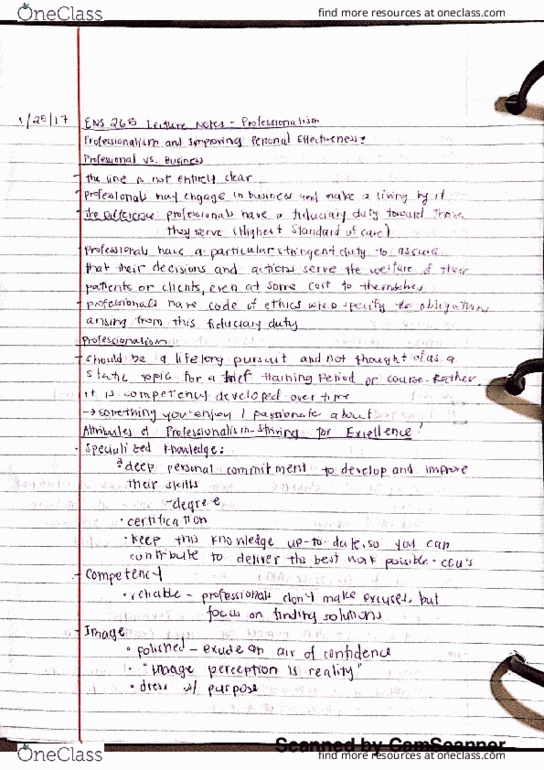 OneClass
find more resources at oneclass.com
1/25/17 ENS 265 Lecture Notes - Professionalism
Professionalism and Improving Personal Effectiveness:
Professional vs. Business
- the line is not entirely clear
- Professionals may engage in business and make a living by it
- The Difference: professionals have a fiduciary duty toward those
they serve (Highest Standard of care)
- Professionals have a particular stringent duty to assure
that their decisions and actions serve the welfare of their
patients or clients, even at some cost to themselves
- professionals have code of ethics specify the obligations
arising from this fiduciary duty
Professionalism
- should be a lifelong pursuit and not thought of as a
static topic for a brief training period or course. Rather,
it is competency developed over time
→ something you enjoy / passionate about
Attributes of Professionalism - Striving for Excellence:
- Specialized knowledge:
deep personal commitment to develop and improve
their skills
- degree
• certification
• keep this knowledge up-to date, so you can
contribute to deliver the best work possible - CEU's
- Competency
• reliable - professionals don't make excuses, but
focus on finding solutions
- Image
• polished - exude an air of confidence
• "image perception is reality"
• dress w/ purpose
Scanned by CamScanner
OneClass
find more resources at oneclass.com